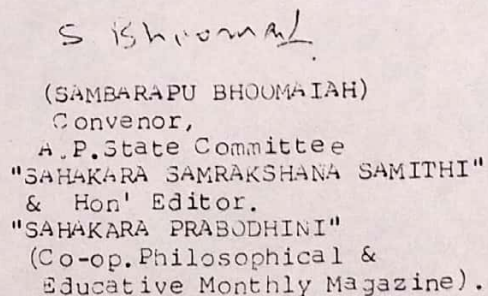 S Bhoomai
(SAMBARAPU BHOOMAIAH)
Convenor,
A.P.State Committee
"SAHAKARA SAMRAKSHANA SAMITHI"
& Hon' Editor.
"SAHAKARA PRABODHINI"
(Co-op.Philosophical &
Educative Monthly Magazine).